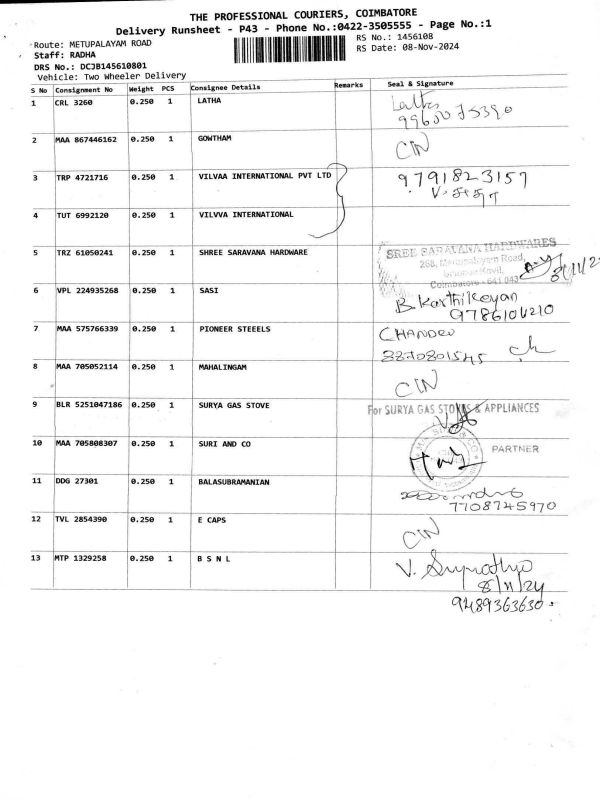 THE PROFESSIONAL COURIERS, COIMBATORE
Delivery Runsheet - P43 - Phone No.:0422-3505555 - Page No.:1
Route: METUPALAYAM ROAD RS No.: 1456108
Staff: RADHA RS Date: 08-Nov-2024
DRS No.: DCJB145610801
Vehicle: Two Wheeler Delivery
S No Consignment No Weight PCS Consignee Details Remarks Seal & Signature
1 CRL 3260 0.250 1 LATHA Latha
2 MAA 867446162 0.250 1 GOWTHAM CIN
3 TRP 4721716 0.250 1 VILVAA INTERNATIONAL PVT LTD 9791823157
4 TUT 6992120 0.250 1 VILVVA INTERNATIONAL
5 TRZ 61050241 0.250 1 SHREE SARAVANA HARDWARE SREE SARAVANA HARDWARES
268, Metupalayam Road,
Coimbatore - 641 043
6 VPL 224935268 0.250 1 SASI B. Karthikeyan
9786104210
7 MAA 575766339 0.250 1 PIONEER STEEELS
8 MAA 705052114 0.250 1 MAHALINGAM CIN
9 BLR 5251047186 0.250 1 SURYA GAS STOVE For SURYA GAS STOVES & APPLIANCES
10 MAA 705808307 0.250 1 SURI AND CO PARTNER
11 DDG 27301 0.250 1 BALASUBRAMANIAN
7708745970
12 TVL 2854390 0.250 1 E CAPS CIN
13 MTP 1329258 0.250 1 B S N L
8/11/24
9489363630